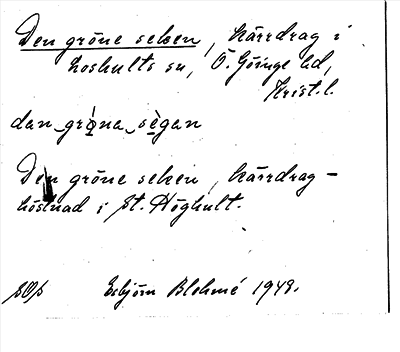 Den gröne seken, kärrdrag i
Loshults sn, Ö. Göinge hd,
Krist. l.
dan gröna sègan
Den gröne seken, kärrdrag –
höstnad i St. Höghult.
Esbjörn Blohmé 1949.